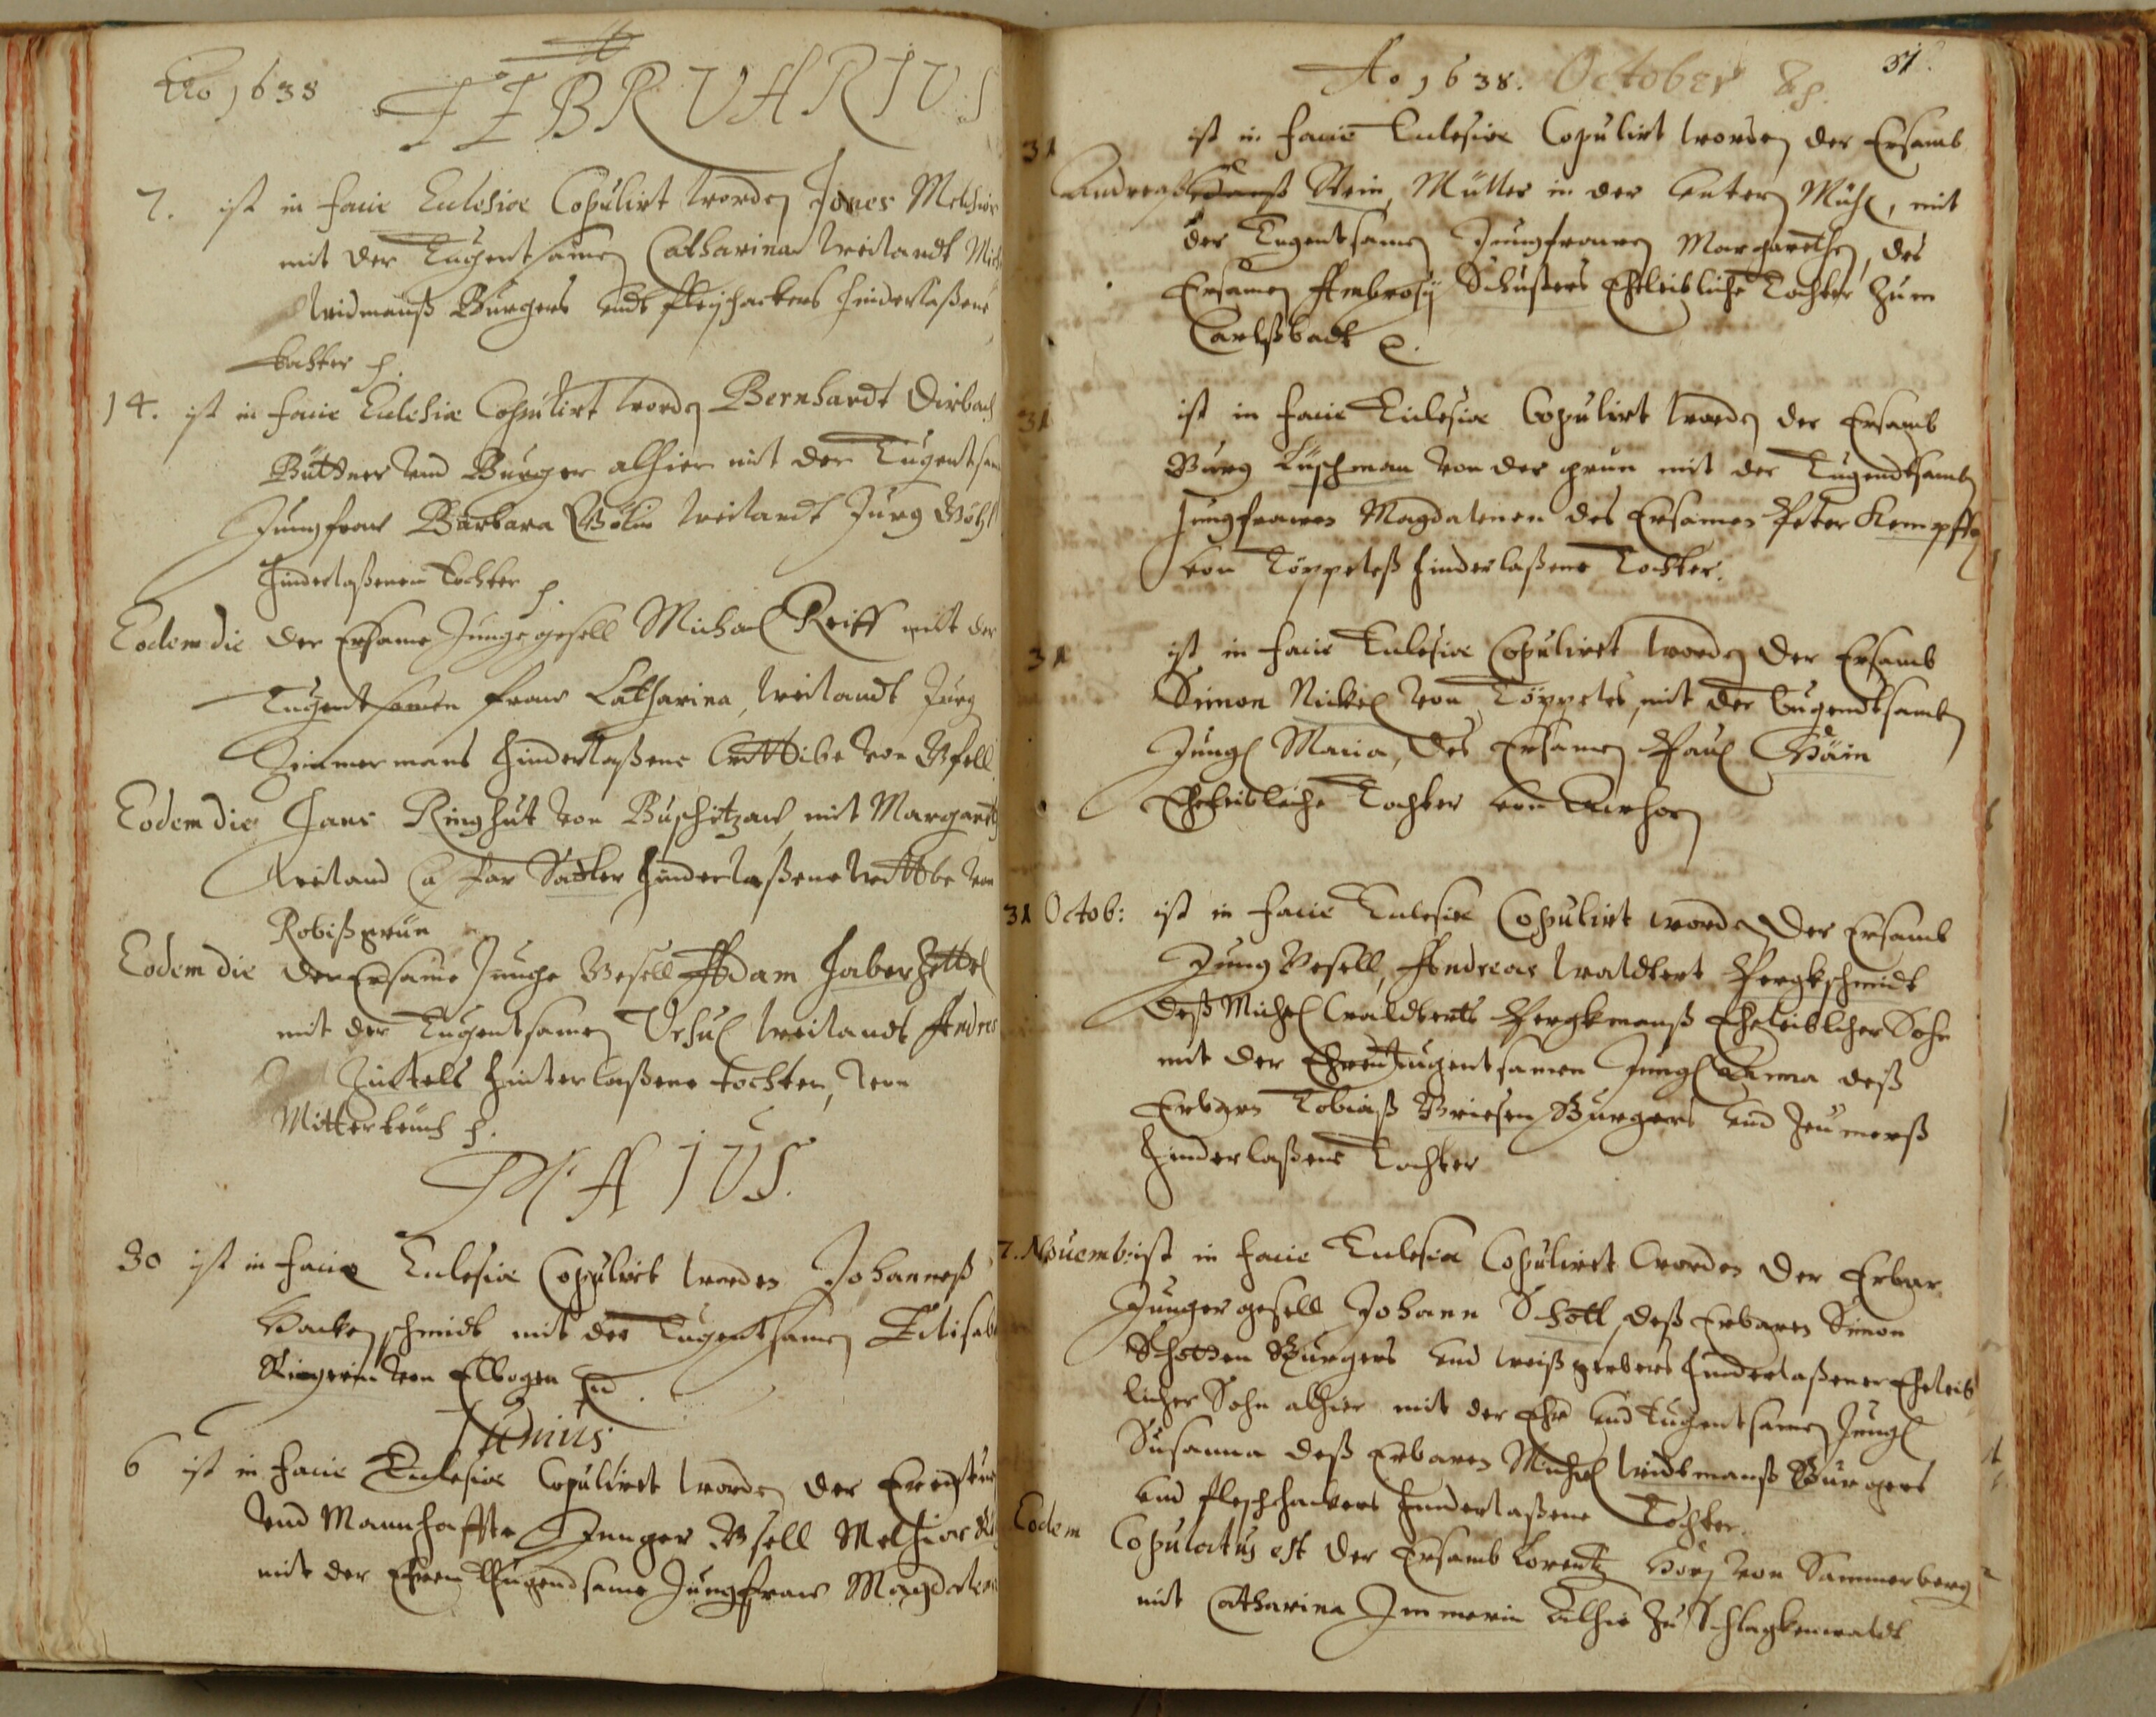 Ao 1638
FEBRUARIUS
7. ist in facie Eclesiæ Copulirt worden Hanes Melchior
mit der Tugentsamen Catharina weilandt Mich
Widmanß Burgers undt fleischackers hinderlaßene
Tochter
14. ist in facie Eclesiæ Copulirt worden Bernhardt Dirbach
Büttner und Burger alhier mit der Tugentsam
Jungfraw Barbara weilandt Jurg
hinderlaßenen Tochter
Eodem die der Ersame Junge gesell Michael Reiff mitt der
Tugentsamen fraw Catharina, weilandt Jurg
Zimmermans hinderlaßene Wittibe von
Eodem die Hans Ringhut von Buschitzaw, mit Margareth
weiland Sadler hinderlaßene Wittbe von
Robißgrün
Eodem die der Ersame Junge Gesell Adam Haberzettel
mit der Tugentsamen Ursul weilandt Andres
Züttels hinterlaßene tochter, von
Mitterteuch
MAIUS.
30 ist in facie Eclesiæ Copulirt worden Johanneß
Hackenschmidt mit der Tugentsamen Elisab
von Elbogen
Junius
6 ist in facie Eclesiæ Copulirt worden der
und Mannhaffte Junger Gsell Melchior
mit der Ehren Thugendsame Jungfraw Magdalena
Ao 1638. October 31.
31 ist in facie Eclesiæ Copulirt worden der Ersamb
Andreas Hanß Stein, Müller in der untern Mühl, mit
der Tugentsamen Jungfrawen Margarethen, des
Ersamen Ambrosÿ Schusters Eheleibliche Tochter zum
Carlßbadt
31 ist in facie Eclesiæ Copulirt worden der Ersamb
Georg Lüschman von der grün mit der Tugendtsamen
Jungfrawen Magdalenen des Ersamen Peter Kempffen
von Töppeleß hinderlaßene Tochter.
31 ist in facie Eclesiæ Copulirt worden der Ersamb
Simon Nickel von Töppeles, mit der Tugendtsamen
Jungf Maria, des Ersamen Paul Häin
Eheleibliche Tochter von
31 Octob: ist in facie Eclesiæ Copulirt worden der Ersamb
Jung Gesell, Andreas Waldtert Bergkschmidt
deß Michel Waldterts Bergkmanß Eheleiblicher Sohn
mit der Ehrn Tugentsamen Jungf Anna deß
Erbarn Tobiaß Griesen Burgers und
hinderlaßene Tochter
7. Novemb: ist in facie Eclesia Copulirt worden der Erbar
Junger gesell Johann Schott, deß Erbaren Simon
Schotten Burgers und weißgerbers hinderlaßener Eheleib
licher Sohn alhier mit der Ehr und Tugentsamen Jungf
Susanna deß Erbaren Michel Widtmanß Burgers
und fleischhackers hinderlaßene Tochter.
Eodem Copulatus est der Ersamb Lorentz von Sammerberg
mit Catharina Immerin alhie zu Schlagkenwaldt